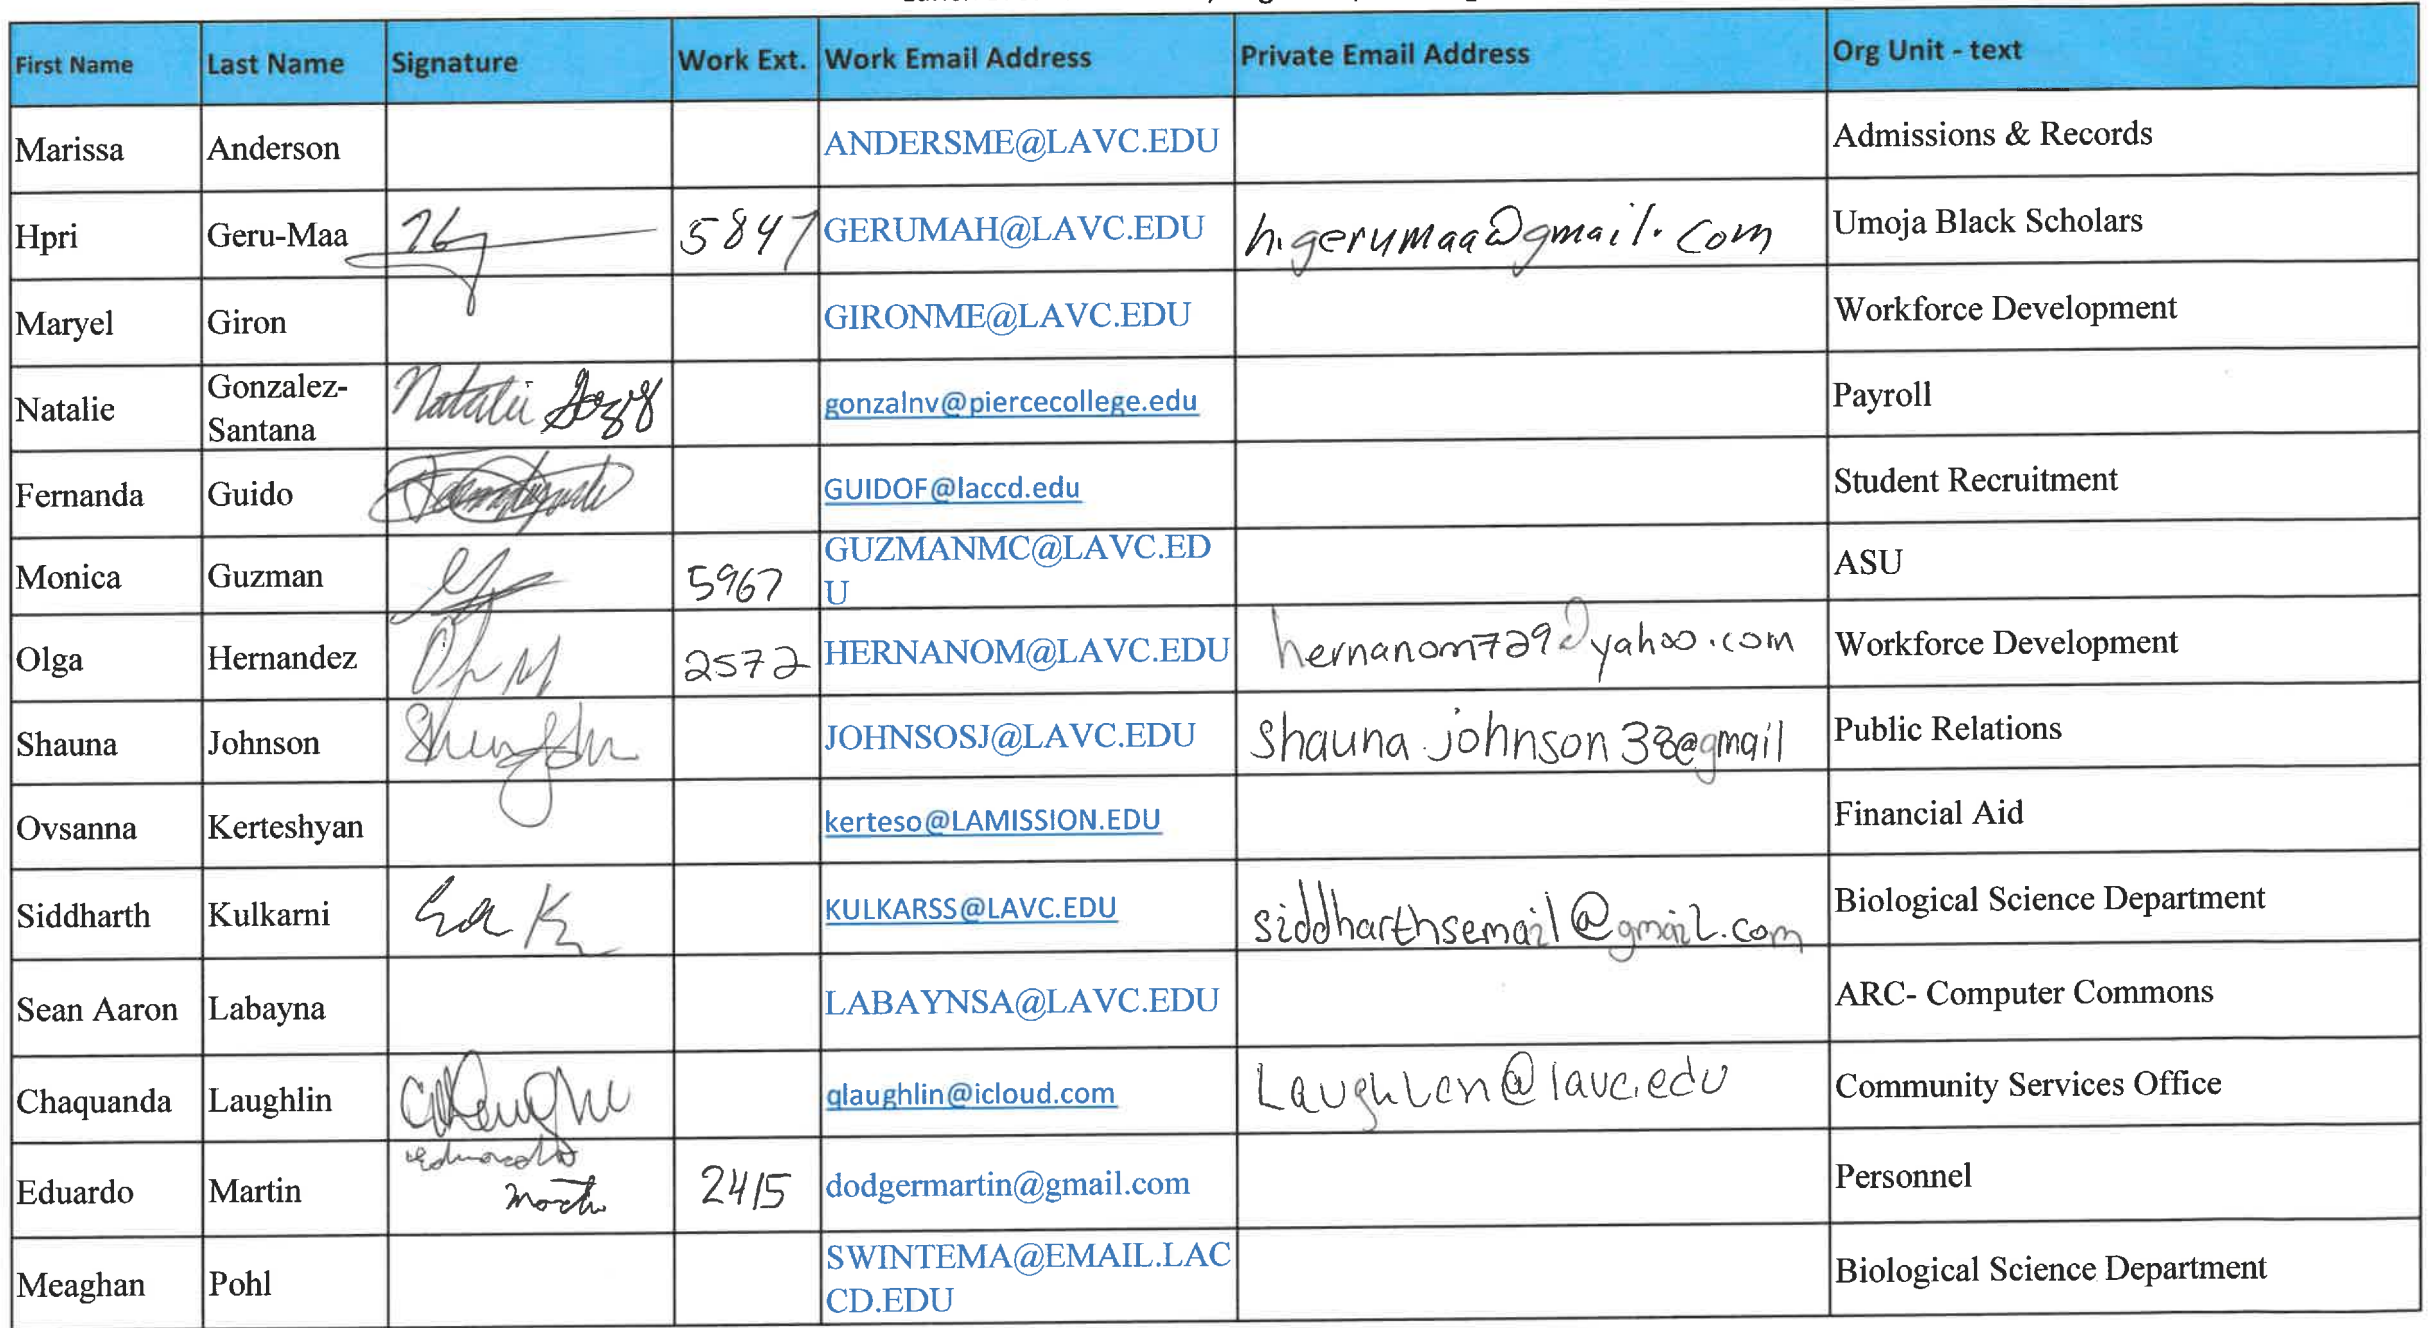 First Name Last Name Signature Work Ext. Work Email Address Private Email Address Org Unit - text
Marissa Anderson ANDERSME@LAVC.EDU Admissions & Records
Hpri Geru-Maa 5847 GERUMAH@LAVC.EDU h.gerumaa@gmail.com Umoja Black Scholars
Maryel Giron GIRONME@LAVC.EDU Workforce Development
Natalie Gonzalez-
Santana Natalie gonzalnv@piercecollege.edu Payroll
Fernanda Guido GUIDOF@laccd.edu Student Recruitment
Monica Guzman 5967 GUZMANMC@LAVC.ED
U ASU
Olga Hernandez 2572 HERNANOM@LAVC.EDU hernanom729@yahoo.com Workforce Development
Shauna Johnson JOHNSOSJ@LAVC.EDU shauna.johnson38@gmail Public Relations
Ovsanna Kerteshyan kerteso@LAMISSION.EDU Financial Aid
Siddharth Kulkarni KULKARSS@LAVC.EDU siddharthsemail@gmail.com Biological Science Department
Sean Aaron Labayna LABAYNSA@LAVC.EDU ARC- Computer Commons
Chaquanda Laughlin qlaughlin@icloud.com Laughlcn@lavc.edu Community Services Office
Eduardo Martin Eduardo
Martin 2415 dodgermartin@gmail.com Personnel
Meaghan Pohl SWINTEMA@EMAIL.LAC
CD.EDU Biological Science Department